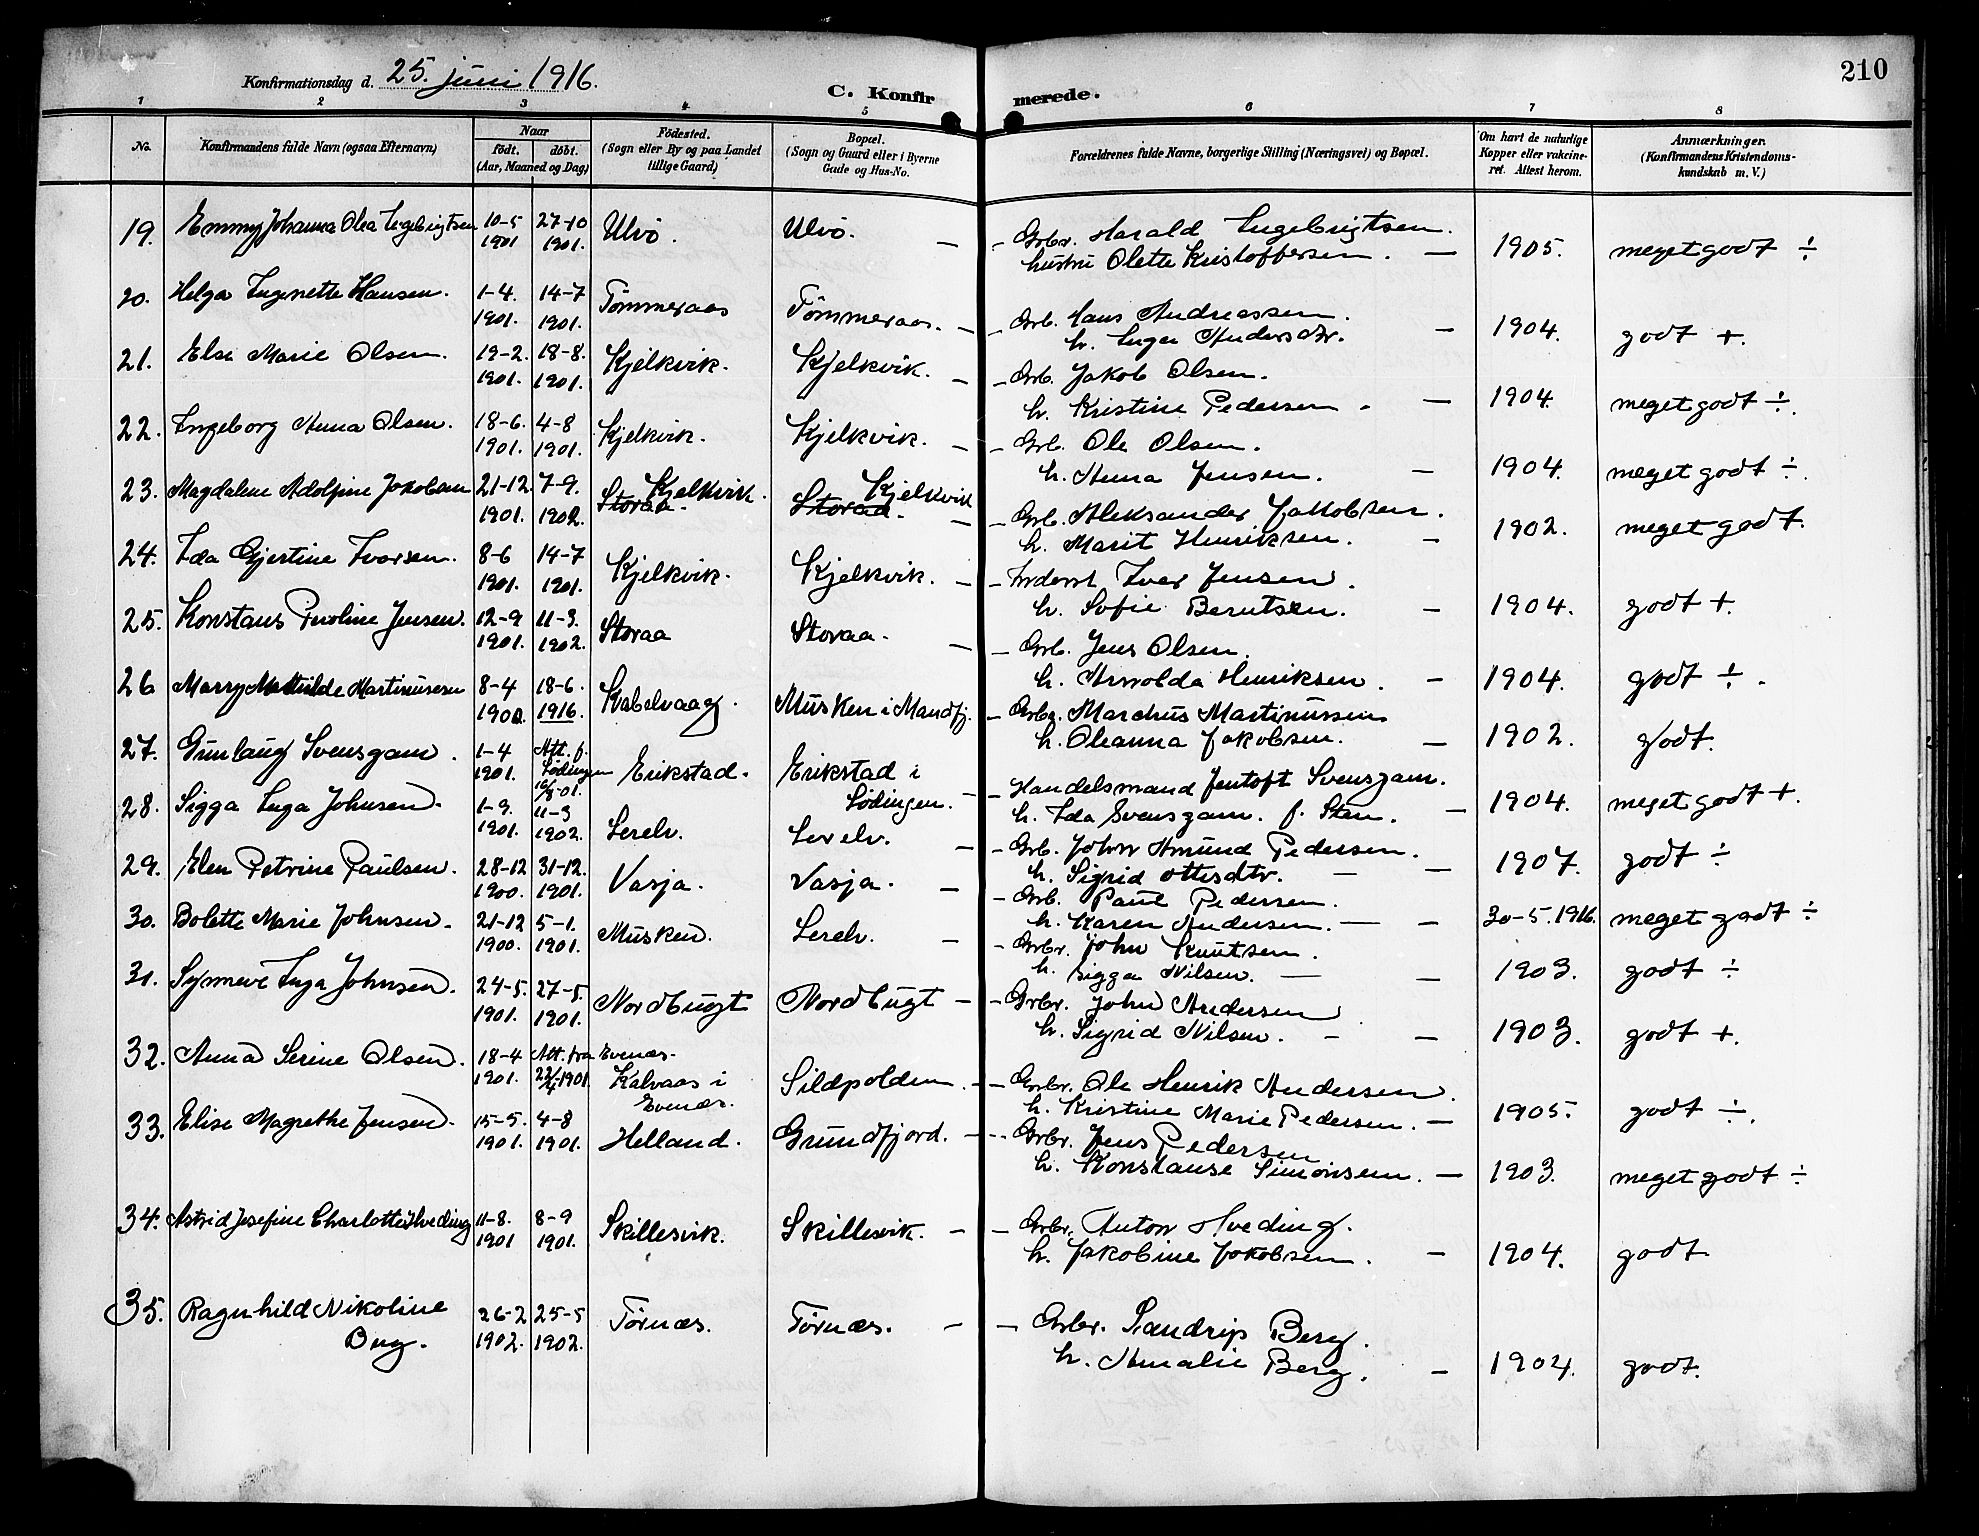 210
Konfirmationsdag d. 25. juni 1916.
C. Konfirmerede.
1 2 3 4 5 6 7 8
No. Konfirmandens fulde Navn (ogsaa Efternavn) Naar født. døbt. (Aar, Maaned og Dag) Fødested. (Sogn eller By og paa Landet tillige Gaard) Bopæl. (Sogn og Gaard eller i Byerne Gade og Hus-No. Forældrenes fulde Navne, borgerlige Stilling (Næringsvei) og Bopæl. Om havt de naturlige Kopper eller vakcineret. Attest herom. Anmærkninger. (Konfirmandens Kristendomskundskab m. V.)
19. Emmy Johanna Olea Ingebrigtsen 10-5 27-10 Ulvö. Ulvö. — - Grbr. Harald Ingebrigtsen.
1901 1901. hustru Olette Kristoffersen. — 1905. meget godt ÷
20. Helga Ingenette Hansen. 1-4. 14-7 Tömmeraas Tömmeraas. - - Grb. Hans Andreassen.
1901. 1901. h. Inger Andersdtr. — 1904. godt +.
21. Else Marie Olsen. 19-2. 18-8. Kjelkvik. Kjelkvik. - - Grb. Jakob Olsen.
1901. 1901. h. Kristine Pedersen. — 1904. meget godt ÷.
22. Ingeborg Anna Olsen. 18-6. 4-8 Kjelkvik. Kjelkvik. - - Grb. Ole Olsen.
1901. 1901. h. Anna Jensen. — 1904. meget godt ÷.
23. Magdalene Adolfine Jakobsen 21-12 7-9. Storaa. Kjelkvik. Storaa. Kjelkvik - - Grb. Aleksander Jakobsen.
1901. 1902. h. Marit Henriksen. - 1902. meget godt.
24. Ida Gjertine Ivarsen. 8-6 14-7 Kjelkvik. Kjelkvik. - - Inderst Ivar Jensen.
1901. 1901. h. Sofie Berntsen. - 1904. godt +.
25. Konstans Peroline Jensen. 12-9 11-3. Storaa Storaa. - - Grb. Jens Olsen.
1901. 1902. h. Arnolda Henriksen. - 1904. godt ÷.
26 Marry Mathilde Martinussen 8-4 18-6. Kabelvaag. Musken i Mandfj. - Grbr. Marchus Martinussen
1900. 1916. h. Oleanna Jakobsen. — 1902. godt.
27. Gunlaug Svensgam. 1-4 Att. f. Erikstad. Erikstad i - - Handelsmand Jentoft Svensgam.
1901. Lödingen Lödingen. h. Ida Svensgam. f. Sten. — 1904. meget godt +.
28. Sigga Inga Johnsen. 1-9. 11-3 Lerelv. Lerelv. - - Grb. John Amund Pedersen.
1901. 1902. h. Sigrid Ottesdtr. — — 1907. godt ÷
29. Elen Petrine Paulsen. 28-12 31-12. Vasja. Vasja. — - Grb. Paul Pedersen.
1900. 1901. h. Karen Andersen. — - 30-5. 1916. meget godt ÷
30. Bolette Marie Johnsen. 21-12 5-1. Musken. Lerelv. - - Grbr. John Knutsen.
1900. 1901. h. Sigga Nilsen. — — 1903. godt ÷
31. Synneve Inga Johnsen. 24-5. 27-5. Nordbugt Nordbugt - - Grbr. John Andersen
1901. 1901. h. Sigrid Nilsen. - — 1903. godt +.
32. Anna Serine Olsen. 18-4 Att. fra Evenæs. Sildpolden. - - Grbr. Ole Henrik Andersen.
1901. 1901. Kalvaas i Evenæs. h. Kristine Marie Pedersen. - 1905. godt ÷.
33. Elise Magrethe Jensen. 15-5. 4-8 Helland. Grundfjord. - - Grbr. Jens Pedersen
1901. 1901. h. Konstanse Simonsen. — 1903. meget godt ÷
34. Astrid Josefine Charlotte Hveding 11-8. 8-9 Skillesvik. Skillesvik. - - Grbr. Anton Hveding.
1901 1901. h. Jakobine Jakobsen. - 1904. godt
35. Ragnhild Nikoline 26-2 25-5 Törnæs. Törnæs. - - Grbr. Sandrip Berg.
Berg. 1902. 1902. h. Amalie Berg. - 1904. godt.